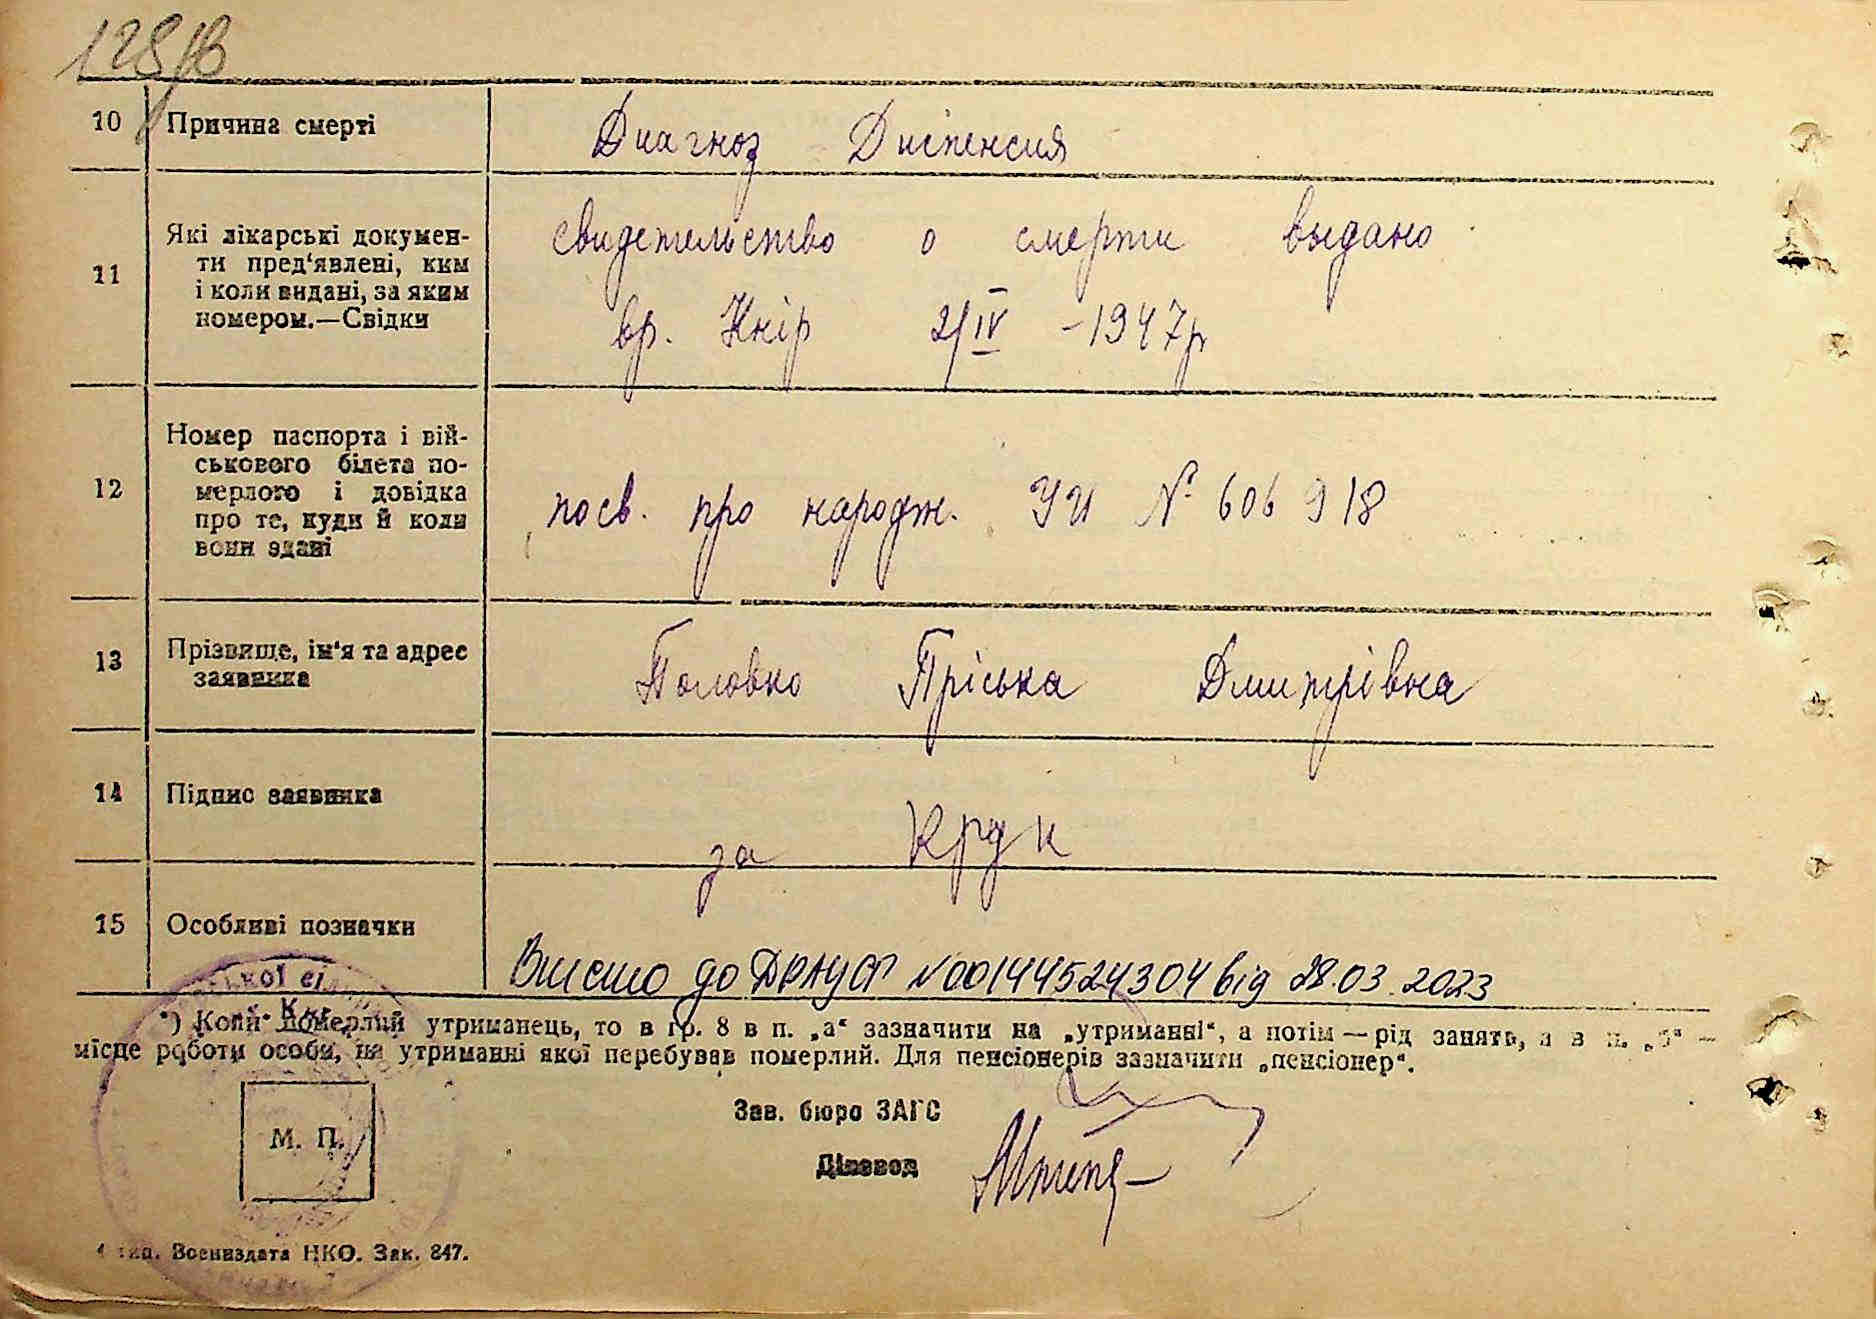 128/в
10 Причина смерті Диагноз Диспенсия
11 Які лікарські докумен-
ти пред'явлені, ким
і коли видані, за яким
номером.—Свідки
свидетельство о смерти выдано
вр. Кнір 2/IV -1947р
12 Номер паспорта і вій-
ськового білета по-
мерлого і довідка
про те, куди й коли
вони здані
посв. про народж. УИ № 606918
13 Прізвище, ім'я та адрес
заявника
Половко Пріська Дмитрівна
14 Підпис заявника за Крук
15 Особливі позначки
Внесено до ДРАЦСГ №00144524304 від 28.03.2023
*) Коли померлий утриманець, то в гр. 8 в п. „а" зазначити на „утриманні", а потім — рід занять, а в п. „б" —
місце роботи особи, на утриманні якої перебував померлий. Для пенсіонерів зазначити „пенсіонер".
Зав. бюро ЗАГС
М. П.
Діловод
4 тип. Воениздата НКО. Зак. 847.